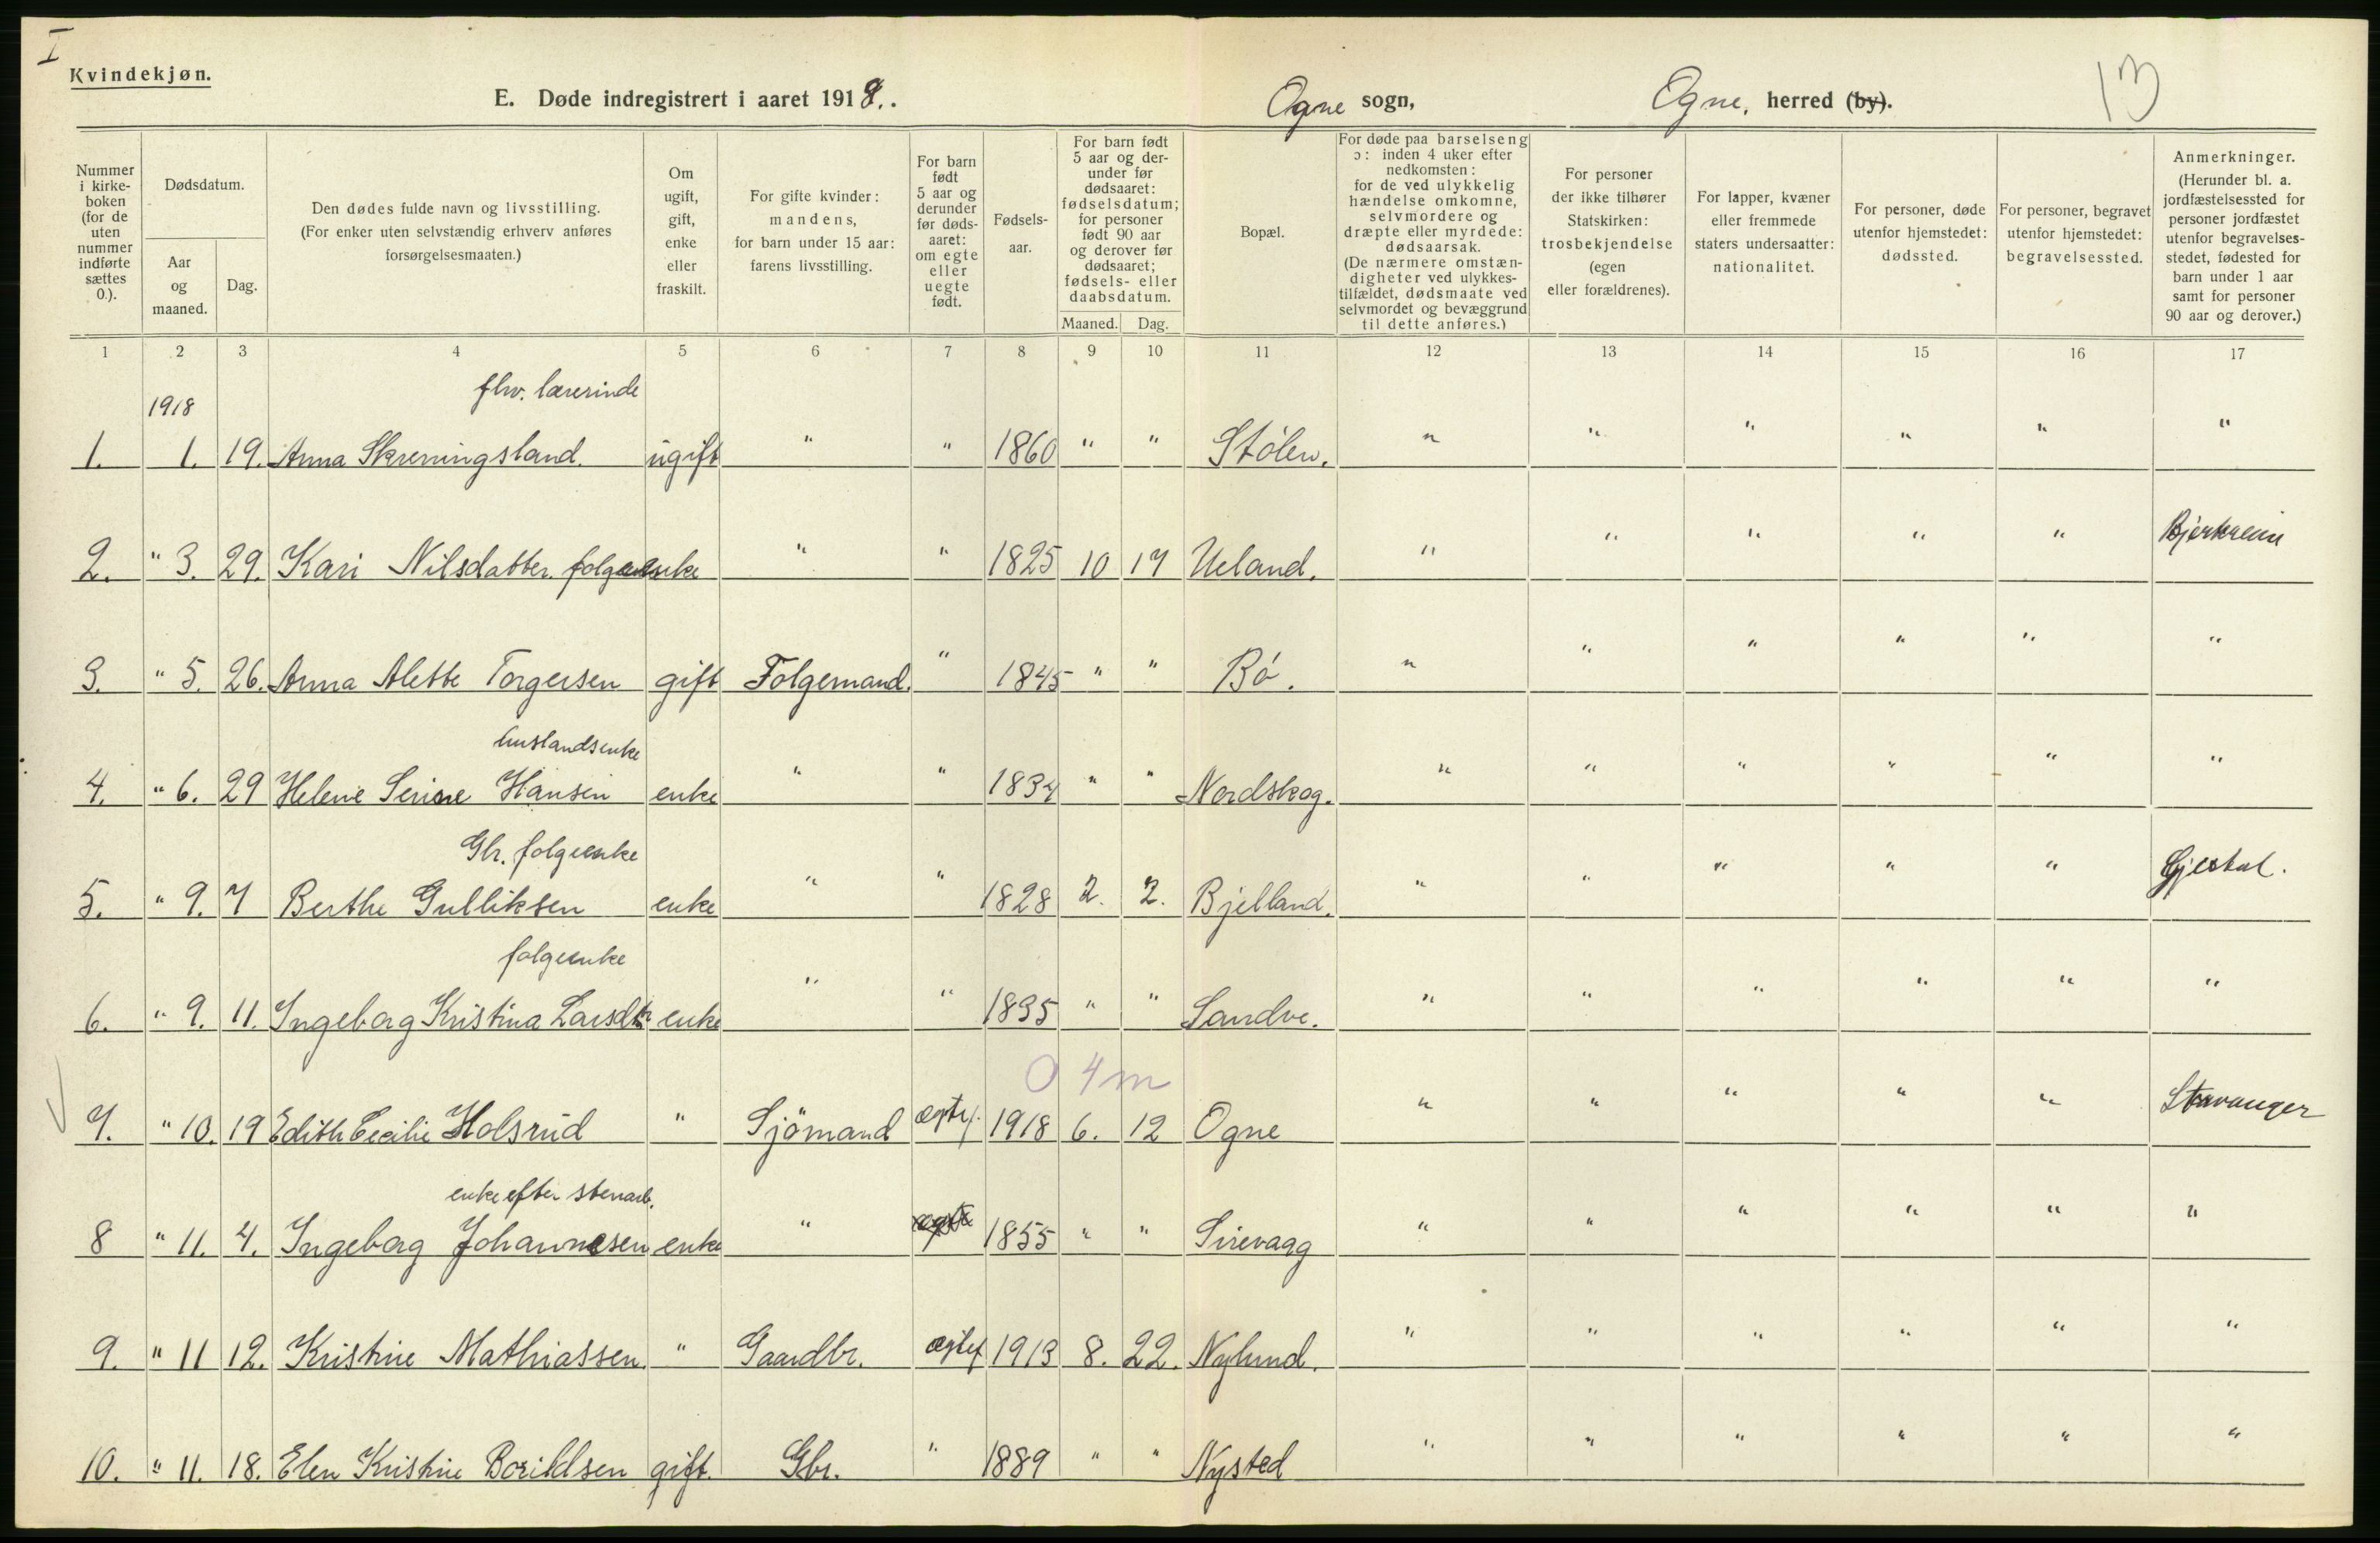 I
Kvindekjøn.
E. Døde indregistrert i aaret 1918.
Ogne sogn,
Ogne, herred (by).
13
Nummer i kirke- boken (for de uten nummer indførte sættes 0.).
Dødsdatum.
Aar og maaned.
Dag.
Den dødes fulde navn og livsstilling. (For enker uten selvstændig erhverv anføres forsørgelsesmaaten.)
Om ugift, gift, enke eller fraskilt.
For gifte kvinder: mandens, for barn under 15 aar: farens livsstilling.
For barn født 5 aar og derunder før døds- aaret: om egte eller uegte født.
Fødsels- aar.
For barn født 5 aar og der- under før dødsaaret: fødselsdatum; for personer født 90 aar og derover før dødsaaret; fødsels- eller daabsdatum.
Maaned. Dag.
Bopæl.
For døde paa barselseng ɔ: inden 4 uker efter nedkomsten: for de ved ulykkelig hændelse omkomne, selvmordere og dræpte eller myrdede: dødsaarsak. (De nærmere omstæn- digheter ved ulykkes- tilfældet, dødsmaate ved selvmordet og bevæggrund til dette anføres.)
For personer der ikke tilhører Statskirken: trosbekjendelse (egen eller forældrenes).
For lapper, kvæner eller fremmede staters undersaatter: nationalitet.
For personer, døde utenfor hjemstedet: dødssted.
For personer, begravet utenfor hjemstedet: begravelsessted.
Anmerkninger. (Herunder bl. a. jordfæstelsessted for personer jordfæstet utenfor begravelses- stedet, fødested for barn under 1 aar samt for personer 90 aar og derover.)
1 2 3 4 5 6 7 8 9 10 11 12 13 14 15 16 17
flv. lærerinde
1918
1. 1. 19. Anna Skreningsland. ugift " " 1860 " " Stølen. " " " " " "
2. " 3. 29. Kari Nilsdatter. folgeenke " " 1825 10 17 Ueland. " " " " " Bjerkreim
3. " 5. 26. Anna Alette Torgersen gift Folgemand. " 1845 " " Bø. " " " " " "
huslandsenke
4. " 6. 29 Helene Serine Hansen enke " " 1834 " " Nordskog. " " " " " "
Gbr. folgeenke
5. " 9. 7 Berthe Gulliksen enke " " 1828 2. 2. Bjelland. " " " " " Gjestal.
folgeenke
6. " 9. 11. Ingeborg Kristina Larsdtr enke " " 1835 " " Sandve. " " " " " "
0 4 m
7. " 10. 19 Edith Cecilie Holsrud " Sjömand ægtef. 1918 6. 12 Ogne " " " " " Stavanger
enke efter stenarb.
8 " 11. 4. Ingeborg Johannesen enke " 1855 " " Sirevaag " " " " " "
9. " 11 12. Kristine Mathiassen. " Gaardbr. ægtef 1913 8. 22. Nylund. " " " " " "
10. " 11. 18. Elen Kristine Borildsen gift. Gbr. " 1889 " " Nysted " " " " " "